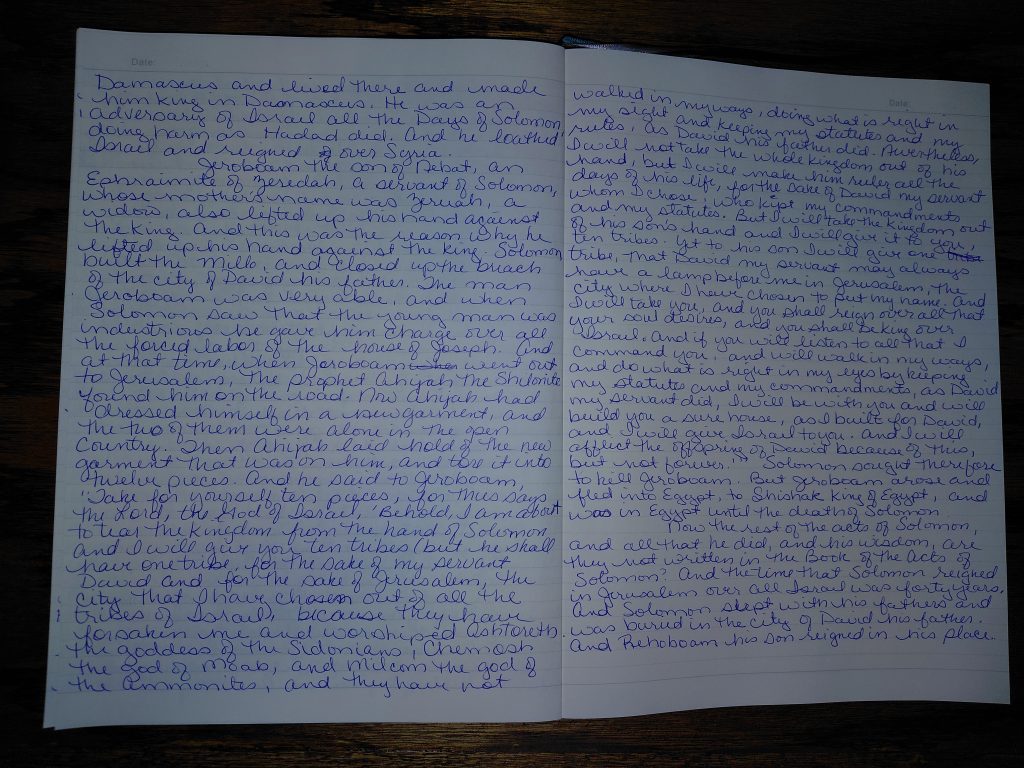 Date:
Damascus and lived there and made
him king in Damascus. He was an
adversary of Israel all the Days of Solomon
doing harm as Hadad did. And he loathed
Israel and reigned over Syria.
Jeroboam the son of Nebat, an
Ephraimite of Zeredah, a servant of Solomon,
whose mother's name was Zeruah, a
widow, also lifted up his hand against
the king. And this was the reason why he
lifted up his hand against the king. Solomon
built the Millo, and closed up the breach
of the city of David his father. The man
Jeroboam was very able, and when
Solomon saw that the young man was
industrious he gave him charge over all
the forced labor of the house of Joseph. And
at that time, when Jeroboam went out
to Jerusalem, the prophet Ahijah the Shilonite
found him on the road. Now Ahijah had
dressed himself in a new garment, and
the two of them were alone in the open
Country. Then Ahijah laid hold of the new
garment that was on him, and tore it into
twelve pieces. And he said to Jeroboam,
"Take for yourself ten pieces, for thus says
the Lord, the God of Israel, 'Behold, I am about
to tear the kingdom from the hand of Solomon
and I will give you ten tribes (but he shall
have one tribe, for the sake of my servant
David and for the sake of Jerusalem, the
city that I have chosen out of all the
tribes of Israel), because they have
forsaken me and worshiped Ashtoreth
the goddess of the Sidonians, Chemosh
the god of Moab, and Milcom the god of
the Ammonites, and they have not
Date:
walked in my ways, doing what is right in
my sight and keeping my statutes and my
rules, as David his father did. Nevertheless,
I will not take the whole kingdom out of his
hand, but I will make him ruler all the
days of his life, for the sake of David my servant
whom I chose, who kept my commandments
and my statutes. But I will take the kingdom out
of his son's hand and I will give it to you,
ten tribes. Yet to his son I will give one
tribe, that David my servant may always
have a lamp before me in Jerusalem, the
city where I have chosen to put my name. And
I will take you, and you shall reign over all that
your soul desires, and you shall be king over
Israel. And if you will listen to all that I
command you, and will walk in my ways,
and do what is right in my eyes by keeping
my statutes and my commandments, as David
my servant did, I will be with you and will
build you a sure house, as I built for David,
and I will give Israel to you. And I will
afflict the offspring of David because of this,
but not forever.'" Solomon sought therefore
to kill Jeroboam. But Jeroboam arose and
fled into Egypt, to Shishak king of Egypt, and
was in Egypt until the death of Solomon.
Now the rest of the acts of Solomon,
and all that he did, and his wisdom, are
they not written in the Book of the Acts of
Solomon? And the time that Solomon reigned
in Jerusalem over all Israel was forty years.
And Solomon slept with his fathers and
was buried in the city of David his father.
And Rehoboam his son reigned in his place.